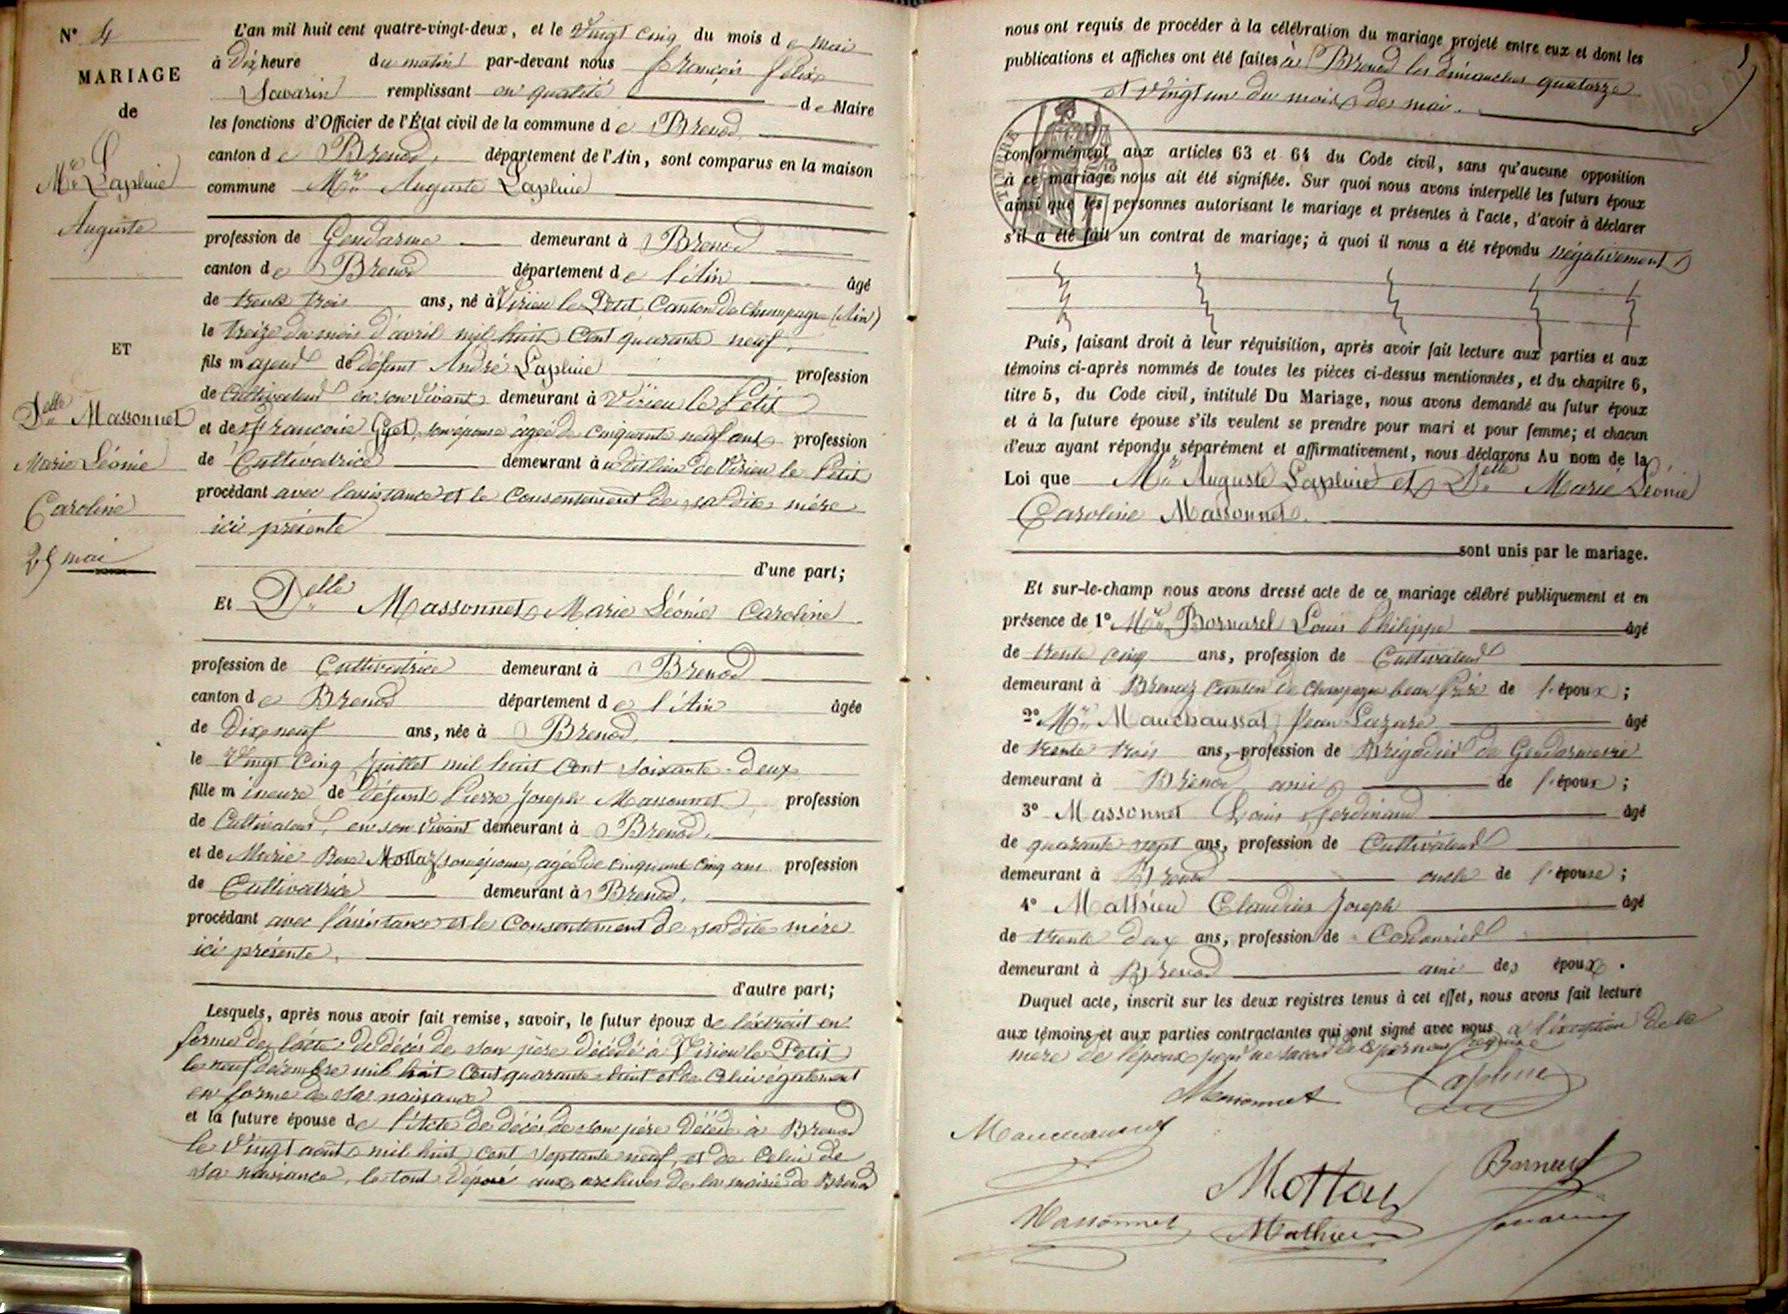 N° 4
MARIAGE
de
Mr Lapluie
Auguste
ET
Delle Massonnet
Marie Léonie
Caroline
25 mai
L'an mil huit cent quatre-vingt-deux, et le vingt cinq du mois de mai
à dix heure du matin par-devant nous françois félix
Savarin remplissant en qualité de Maire
les fonctions d'Officier de l'État civil de la commune de Brenod
canton de Brenod, département de l'Ain, sont comparus en la maison
commune Mr Auguste Lapluie
profession de Gendarme demeurant à Brenod
canton de Brenod département de l'Ain âgé
de trente trois ans, né à Virieu le Petit, Canton de Champagne (Ain)
le treize du mois d'avril mil huit cent quarante neuf,
fils majeur de défunt André Lapluie profession
de Cultivateur en son vivant demeurant à Virieu le Petit
et de françoise son épouse agée de cinquante neuf ans profession
de Cultivatrice demeurant à de Virieu le Petit
procédant avec l'assistance et le consentement de sa dite mère
ici présente
d'une part;
Et Delle Massonnet Marie Léonie Caroline
profession de Cultivatrice demeurant à Brenod
canton de Brenod département de l'Ain âgée
de dix neuf ans, née à Brenod
le vingt cinq juillet mil huit cent soixante-deux
fille mineure de défunt Pierre Joseph Massonnet profession
de Cultivateur, en son vivant demeurant à Brenod,
et de Marie Mottaz son épouse, agée de cinquante cinq ans profession
de Cultivatrice demeurant à Brenod,
procédant avec l'assistance et le consentement de sa dite mère
ici présente,
d'autre part;
Lesquels, après nous avoir fait remise, savoir, le futur époux de l'extrait en
forme de l'acte de décès de son père décédé à Virieu le Petit
le neuf décembre mil huit cent quarante huit et de celui également
en forme de sa naissance
et la future épouse de l'acte de décès de son père décédé à Brenod
le vingt août mil huit cent septante neuf, et de celui de
sa naissance, le tout déposé aux archives de la mairie de Brenod
nous ont requis de procéder à la célébration du mariage projeté entre eux et dont les
publications et affiches ont été faites à Brenod les dimanches quatorze
et vingt un du mois de mai.
TIMBRE
conformément aux articles 63 et 64 du Code civil, sans qu'aucune opposition
à ce mariage nous ait été signifiée. Sur quoi nous avons interpellé les futurs époux
ainsi que les personnes autorisant le mariage et présentes à l'acte, d'avoir à déclarer
s'il a été fait un contrat de mariage; à quoi il nous a été répondu négativement
Puis, faisant droit à leur réquisition, après avoir fait lecture aux parties et aux
témoins ci-après nommés de toutes les pièces ci-dessus mentionnées, et du chapitre 6,
titre 5, du Code civil, intitulé Du Mariage, nous avons demandé au futur époux
et à la future épouse s'ils veulent se prendre pour mari et pour femme; et chacun
d'eux ayant répondu séparément et affirmativement, nous déclarons Au nom de la
Loi que Mr Auguste Lapluie et Delle Marie Léonie
Caroline Massonnet
sont unis par le mariage.
Et sur-le-champ nous avons dressé acte de ce mariage célébré publiquement et en
présence de 1° Mr Bornarel Louis Philippe âgé
de trente cinq ans, profession de Cultivateur
demeurant à canton de Champagne beau frère de l'époux;
2° Mr Mauchaussat Jean Lazare âgé
de trente trois ans, profession de Brigadier de Gendarmerie
demeurant à Brenod ami de l'époux;
3° Massonnet Louis Ferdinand âgé
de quarante sept ans, profession de Cultivateur
demeurant à Brenod oncle de l'épouse;
4° Mathieu Claudius Joseph âgé
de trente deux ans, profession de Cordonnier
demeurant à Brenod ami des époux.
Duquel acte, inscrit sur les deux registres tenus à cet effet, nous avons fait lecture
aux témoins et aux parties contractantes qui ont signé avec nous à l'éxception de la
mère de l'époux pour ne savoir de ce requise
Massonnet Lapluie
Mauchaussat
Mottaz Bornarel
Massonnet Mathieu Savarin